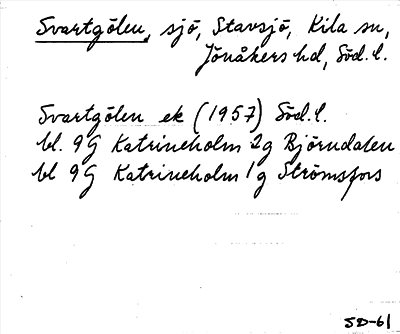 Svartgölen, sjö, Stavsjö, Kila sn,
Jönåkers hd, Söd. l.
Svartgölen ek (1957) Söd. l.
bl. 9G Katrineholm 2g Björndalen
bl 9G Katrineholm 1g Strömsfors
SD-61